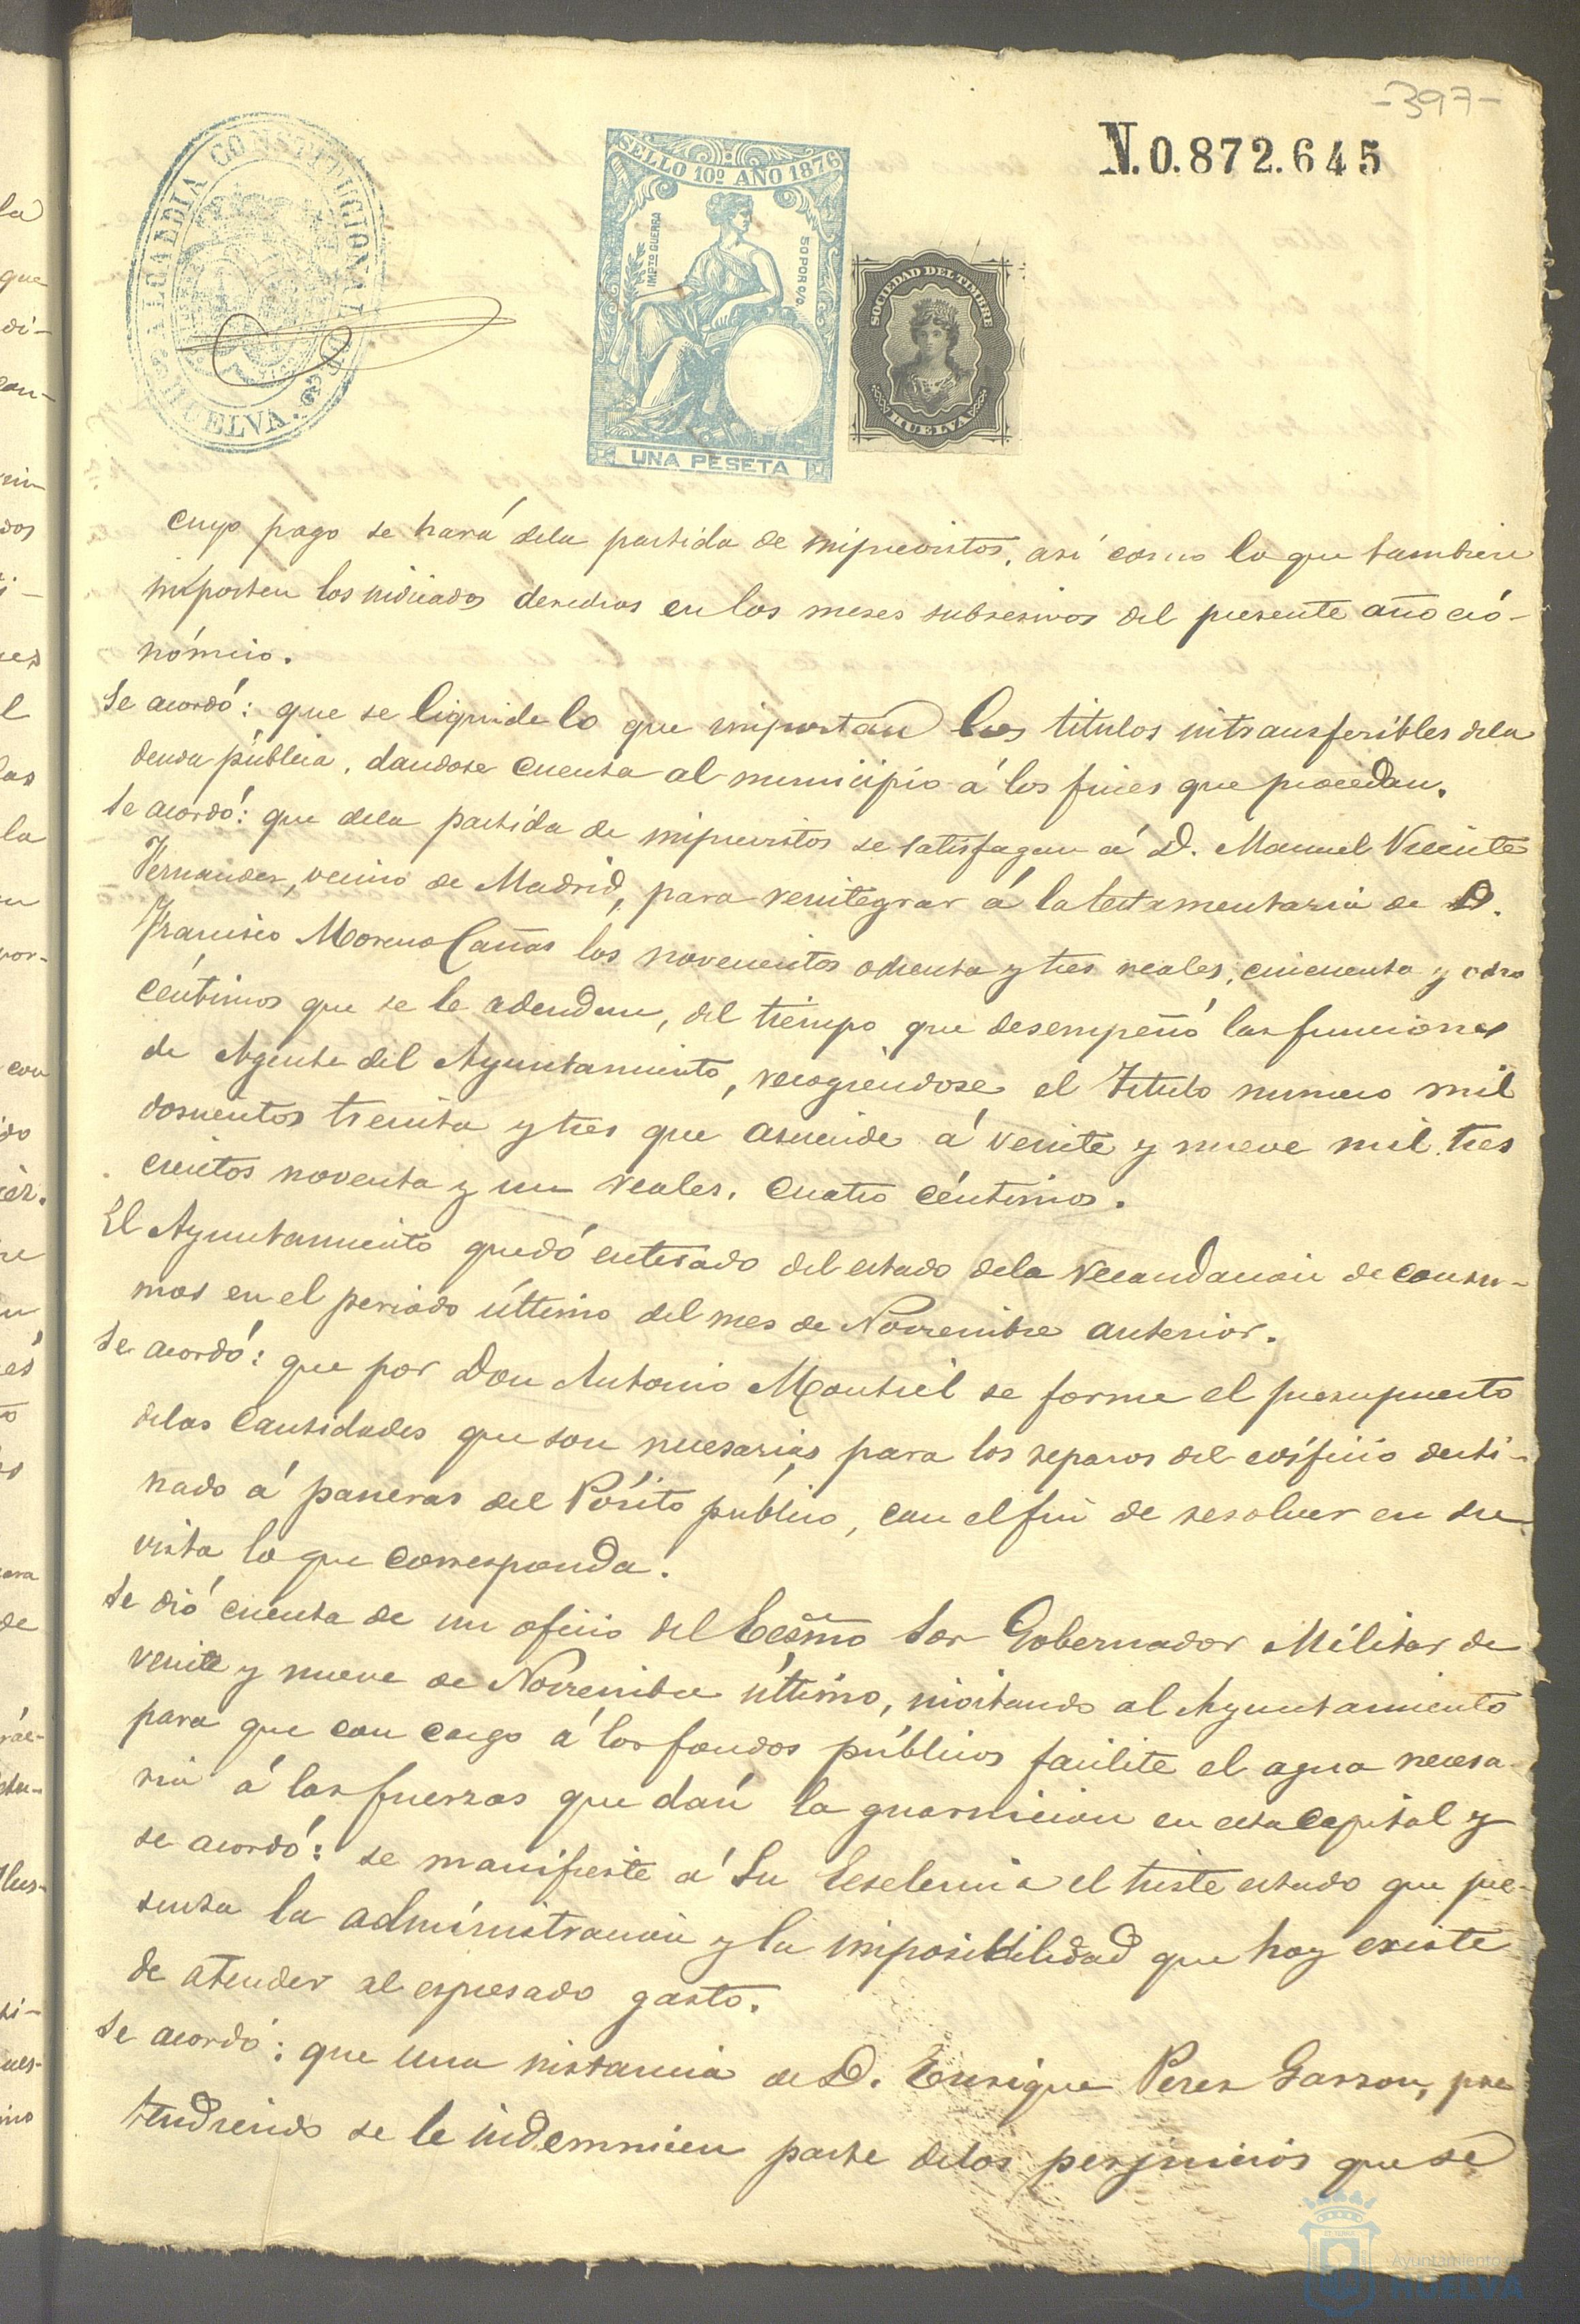 -397-
N.0.872.645
ALCALDIA CONSTITUCIONAL DE HUELVA.
SELLO 10º AÑO 1876
IMPTO GUERRA
50 POR C/O.
UNA PESETA
SOCIEDAD DEL TIMBRE
HUELVA
cuyo pago se hará dela partida de imprevistos, asi como lo que tambien
importen los indicados derechos en los meses subsesivos del presente año eco-
nómico.
Se acordó: que se liquide lo que importan los titulos intransferibles dela
deuda pública, dandose cuenta al municipio á los fines que procedan.
Se acordó: que dela partida de imprevistos se satisfagan á D. Manuel Vicente
Fernandez, vecino de Madrid, para reintegrar á la testamentaria de D.
Francisco Moreno Cañas los novecientos ochenta y tres reales, cincuenta y ocho
céntimos que se le adeudan, del tiempo que desempeñó las funciones
de Agente del Ayuntamiento, recogiendose el Titulo numero mil
doscientos treinta y tres que asciende á veinte y nueve mil tres
cientos noventa y un reales, cuatro céntimos.
El Ayuntamiento quedó enterado del estado dela recaudacion de consu-
mos en el periodo último del mes de Noviembre anterior.
Se acordó: que por Don Antonio Montiel se forme el presupuesto
delas cantidades que son necesarias para los reparos del edificio desti-
nado á paneras del Pósito público, con el fin de resolver en su
vista lo que corresponda.
Se dió cuenta de un oficio del Ecsmo Sor Gobernador Militar de
veinte y nueve de Noviembre último, invitando al Ayuntamiento
para que con cargo á los fondos públicos facilite el agua necesa-
ria á las fuerzas que dan la guarnicion en esta Capital y
se acordó: se manifieste á Su Escelencia el triste estado que pre-
senta la administracion y la imposibilidad que hoy existe
de atender al espresado gasto.
Se acordó: que una instancia de D. Enrique Perez Garzon, pre
tendiendo se le indemnicen parte delos perjuicios que se
Ayuntamiento
HUELVA